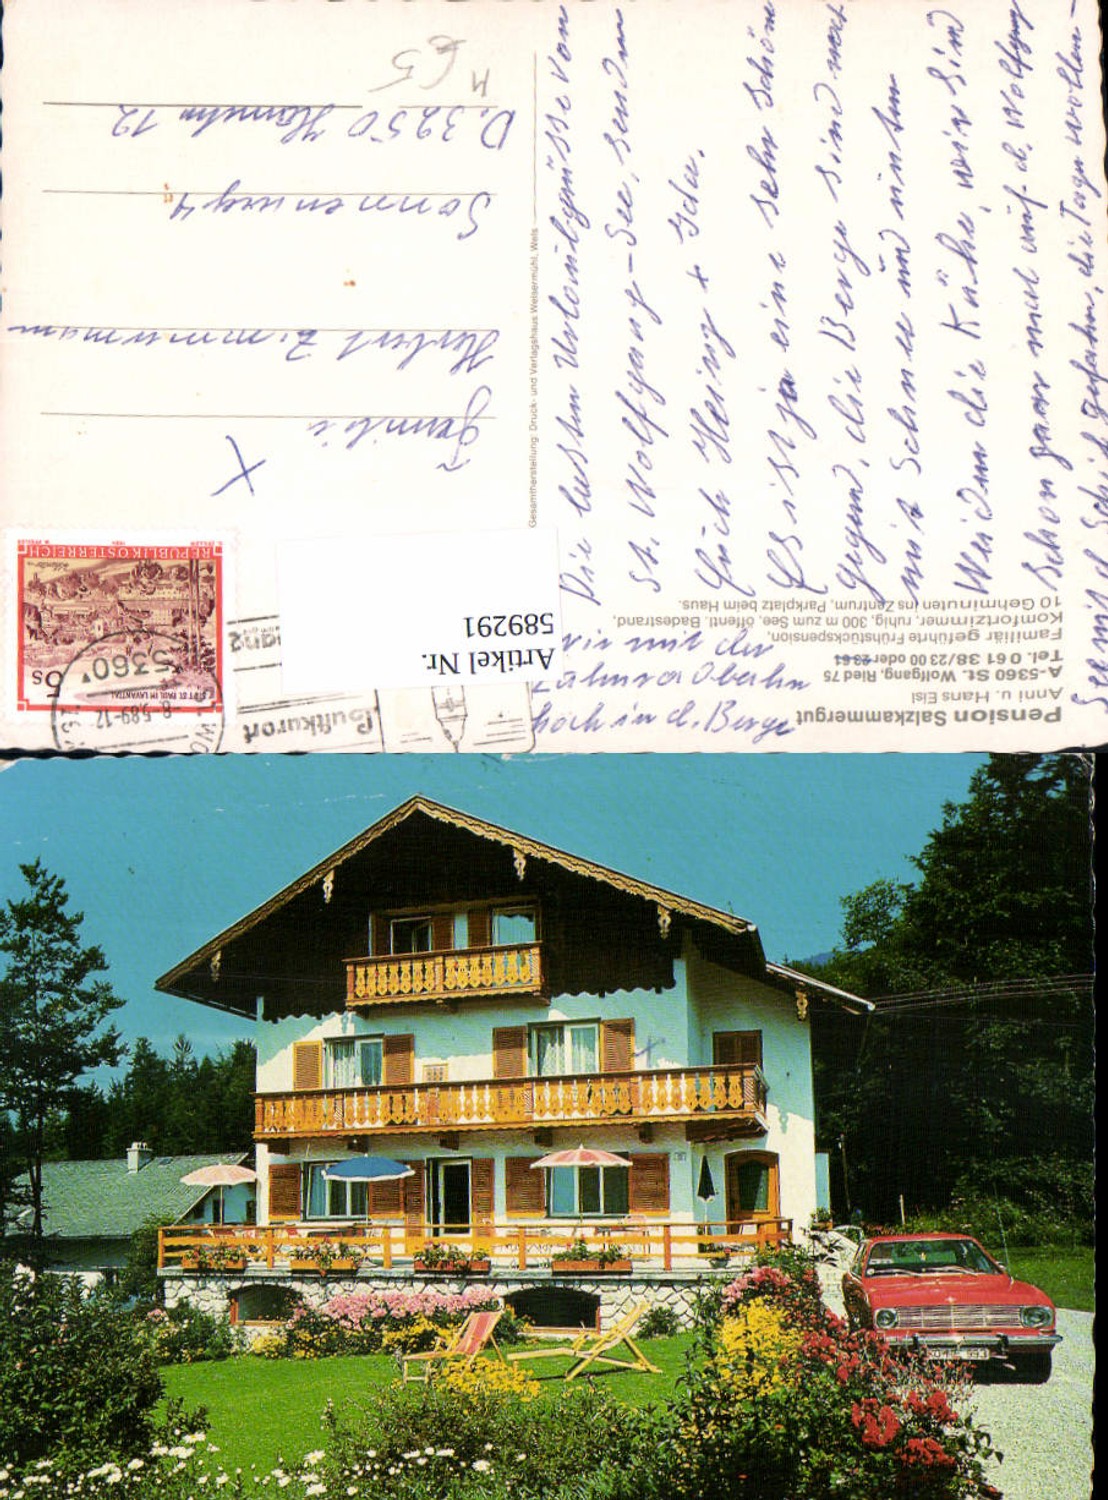 Pension Salzkammergut
Anni u. Hans Eisl
A-5360 St. Wolfgang, Ried 75
Tel. 0 61 38/23 00 oder 23 61
Familiär geführte Frühstückspension,
Komfortzimmer, ruhig, 300 m zum See, öffentl. Badestrand,
10 Gehminuten ins Zentrum, Parkplatz beim Haus.
Die besten Urlaubsgrüsse vom
St. Wolfgang-See, senden
Euch Heinz + Ilse.
Es ist ja eine sehr schöne
Gegend, die Berge sind noch
mit Schnee und unten
Weiden die Kühe, wir sind
schon ganz mal auf d. Wolfgang
See mit d. Schiff gefahren, die Tage wollen
wir mit der
Zahnradbahn
hoch in d. Berge
Gesamtherstellung: Druck- und Verlagshaus Welsermühl, Wels
Familie
Herbert Zimmermann
Sonnenweg 4
D. 3250 Hameln 12
M
€5
Artikel Nr.
589291
5s
STIFT ST. PAUL IM LAVANTTAL
REPUBLIK ÖSTERREICH
5360
-8.5.89-12
Luftkurort